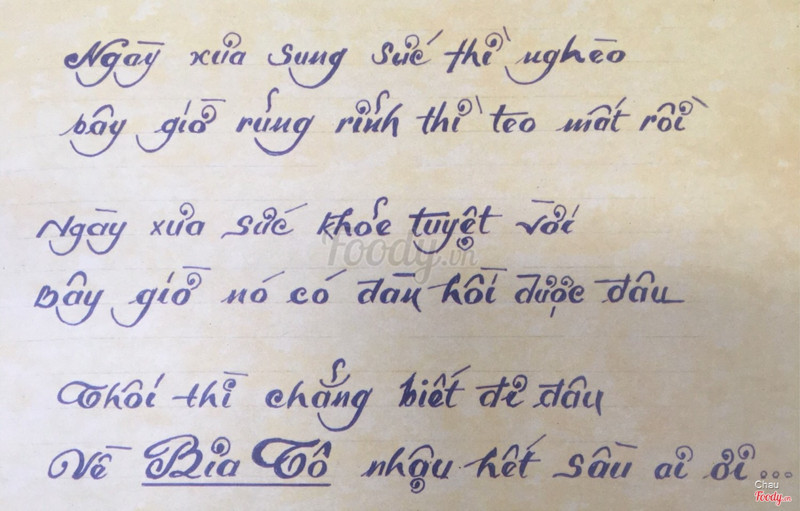 Ngày xưa sung sức thì nghèo
bây giờ rủng rỉnh thì teo mất rồi
Ngày xưa sức khỏe tuyệt vời
Bây giờ nó có đàn hồi được đâu
Thôi thì chẳng biết đi đâu
Về Bia Tô nhậu hết sầu ai ơi...
Foody.vn
Chau
Foody.vn